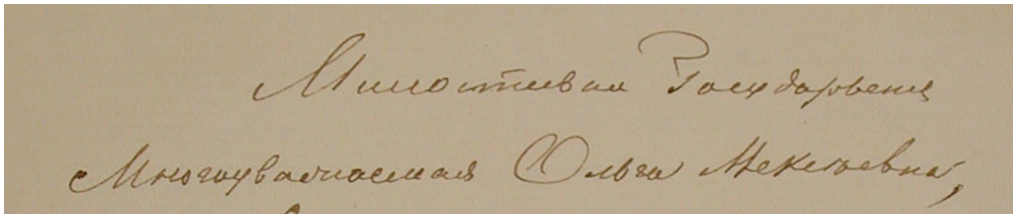 Милостивая Государыня
Многоуважаемая Ольга Алексеевна,